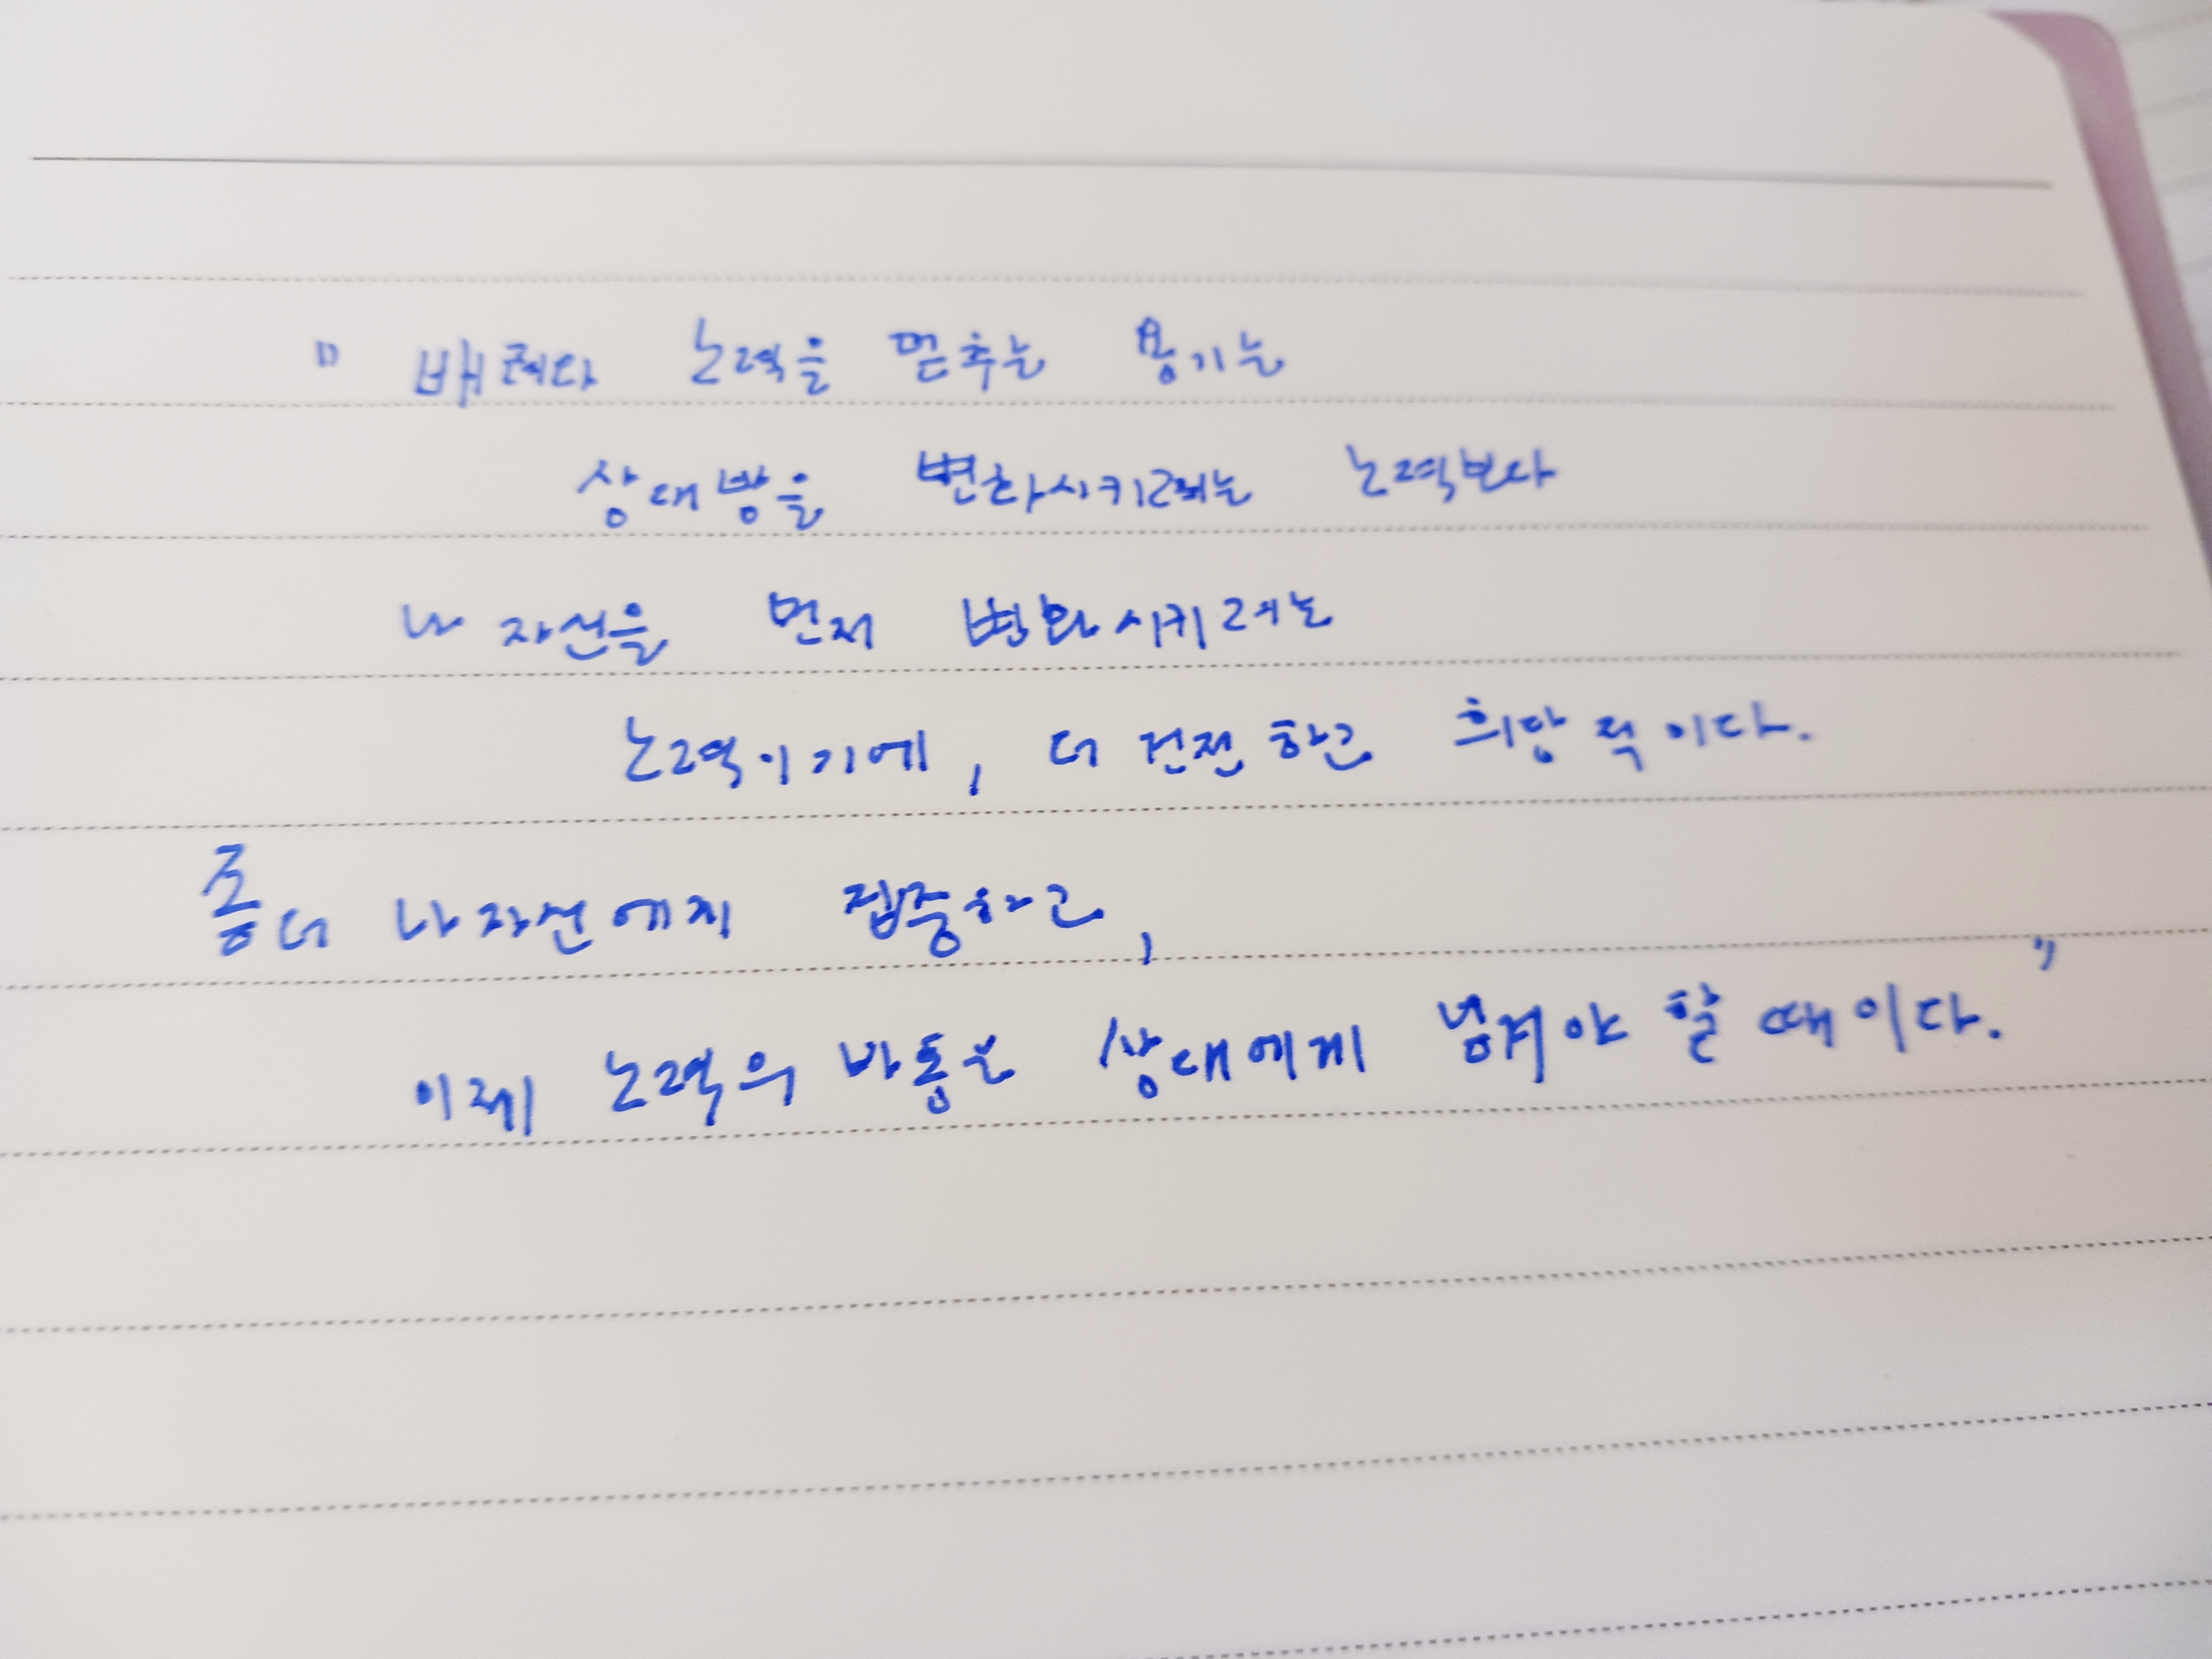 " 배려와 노력을 멈추는 용기는
상대방을 변화시키려는 노력보다
나 자신을 먼저 변화시키려는
노력이기에, 더 건전하고 희망적이다.
좀더 나 자신에게 집중하고,
이제 노력의 바통은 상대에게 넘겨야 할 때이다. "